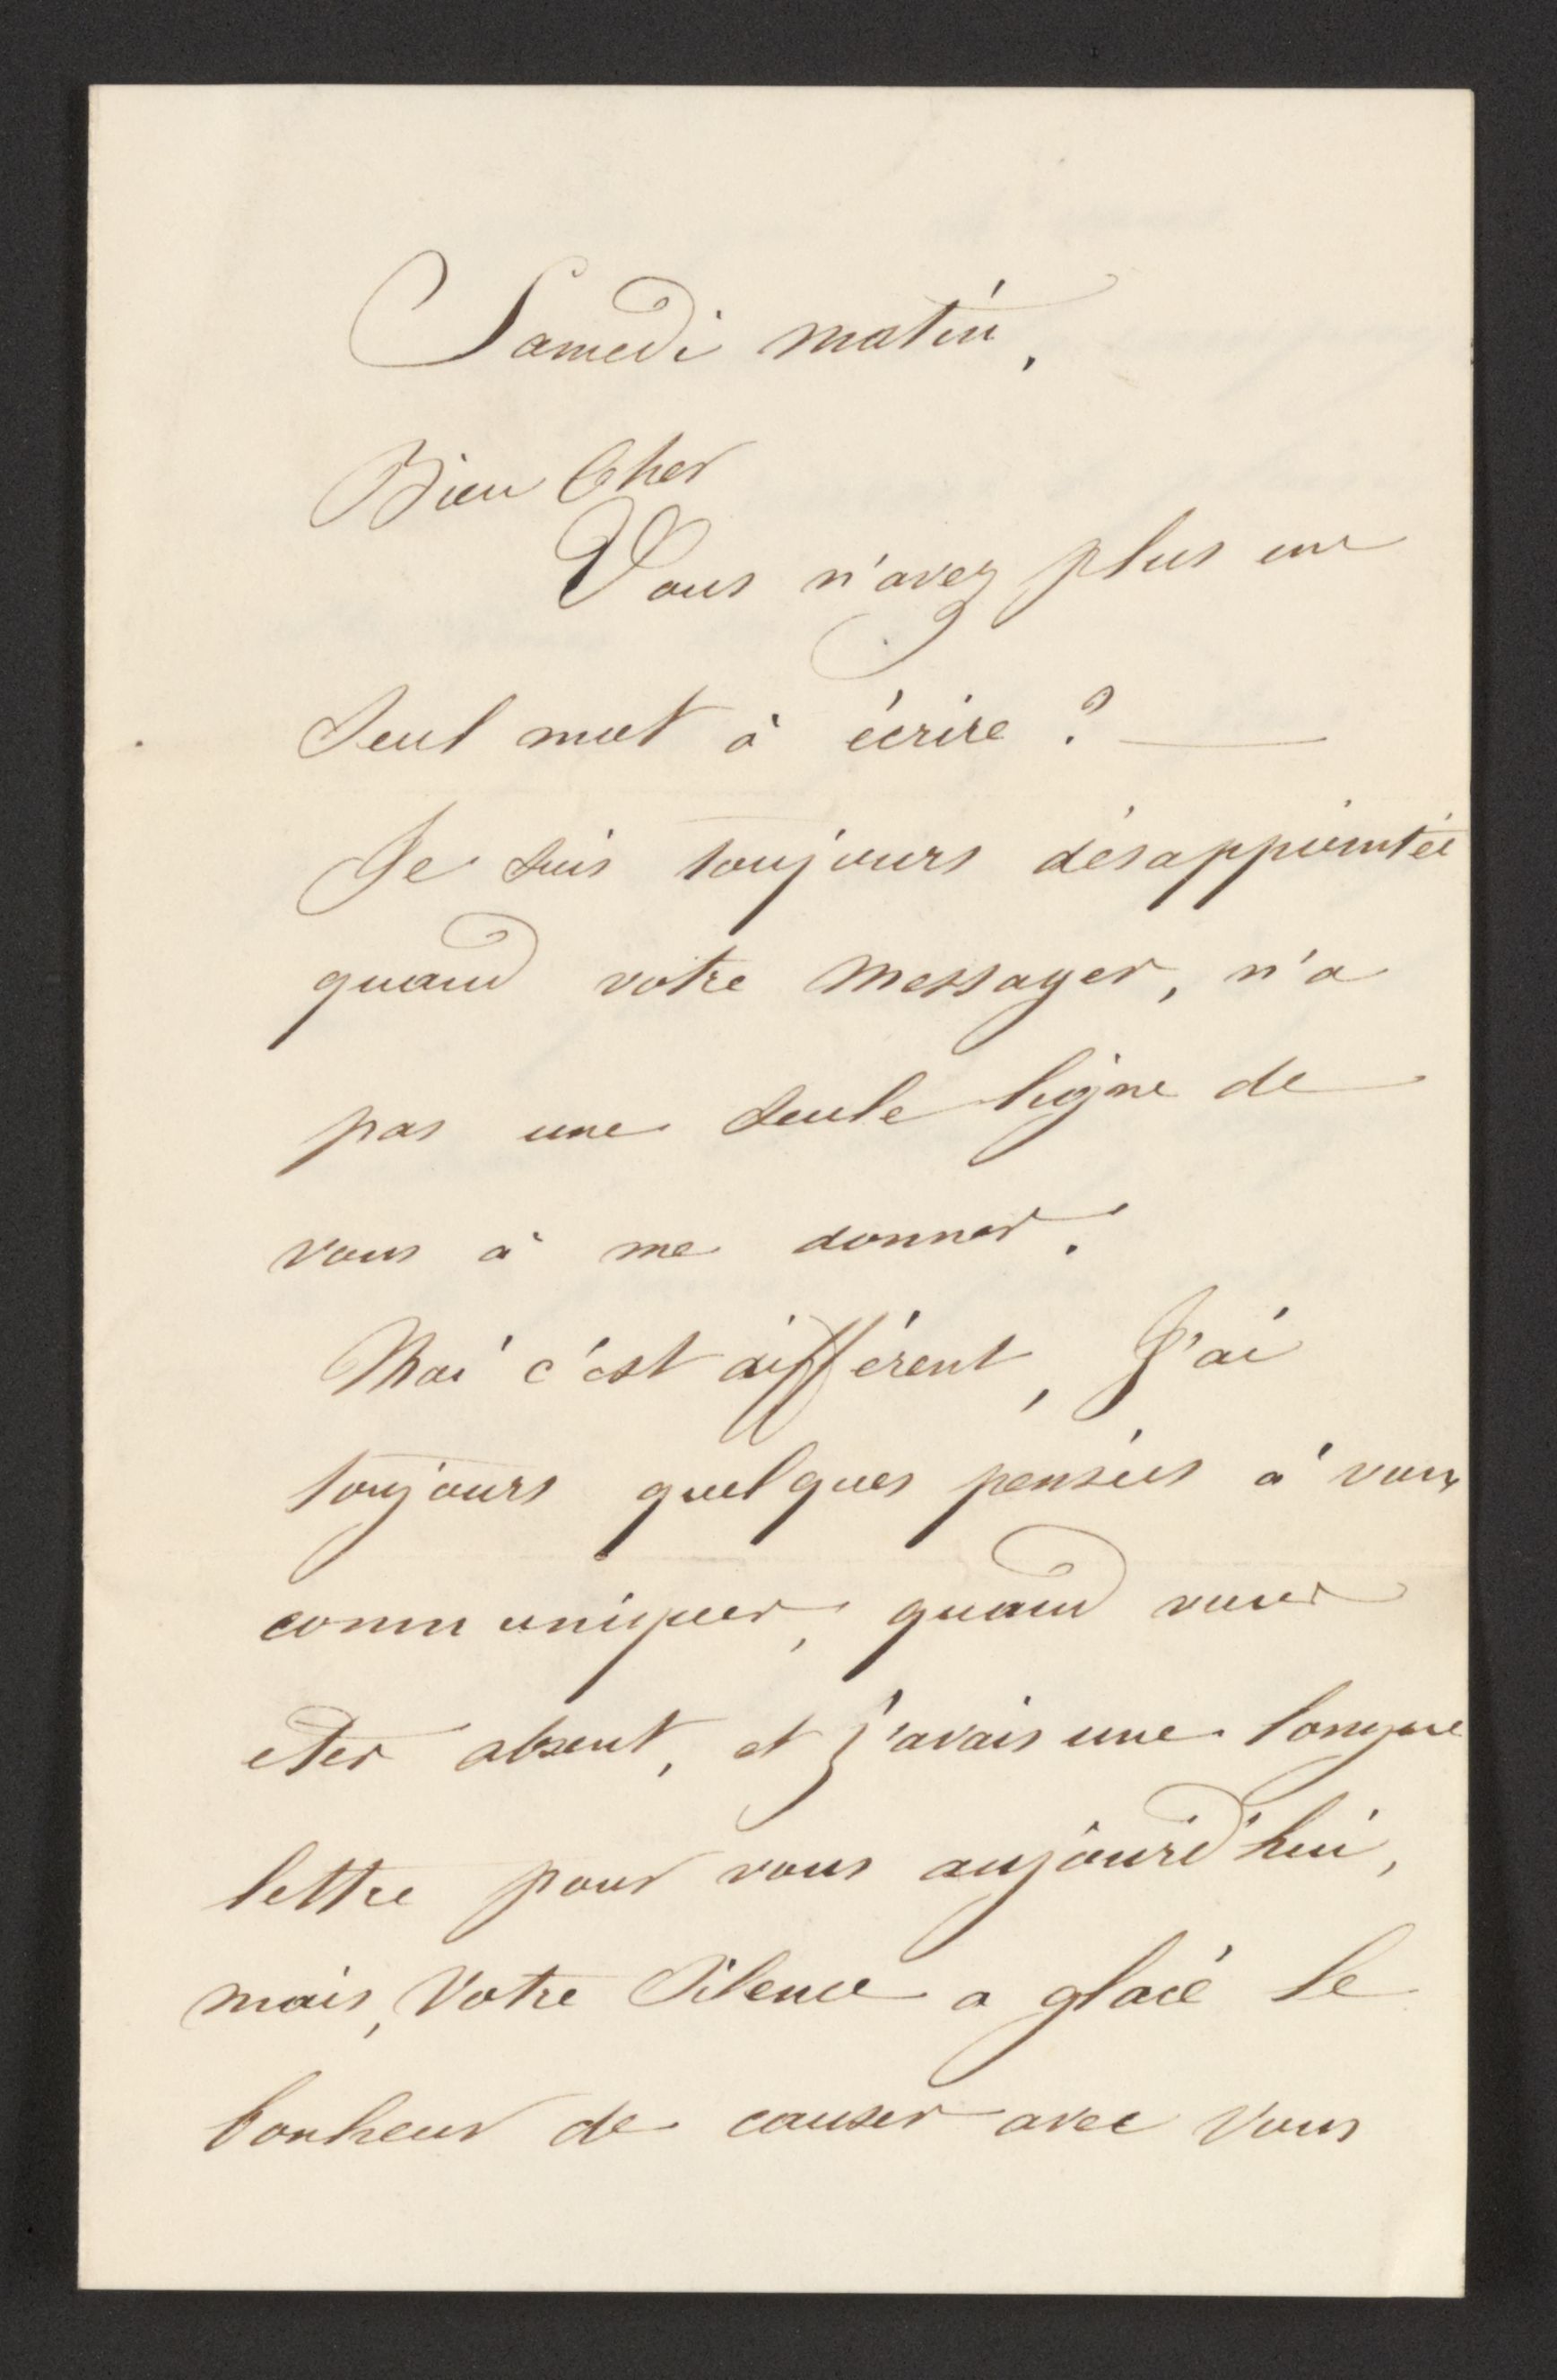 Samedi matin,
Bien Cher
Vous n'avez plus un
Seul mot à écrire ? —
Je suis toujours désappointée
quand votre messager, n'a
pas une seule ligne de
vous à me donner.
Moi c'est différent, J'ai
toujours quelques pensées à vous
communiquer, quand vous
êtes absent, et j'avais une longue
lettre pour vous aujourd'hui,
mais, Votre Silence a glacé le
bonheur de causer avec Vous